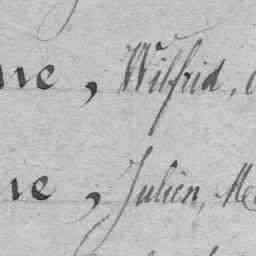 ne, Wilfrid,
ne, Julien, Me